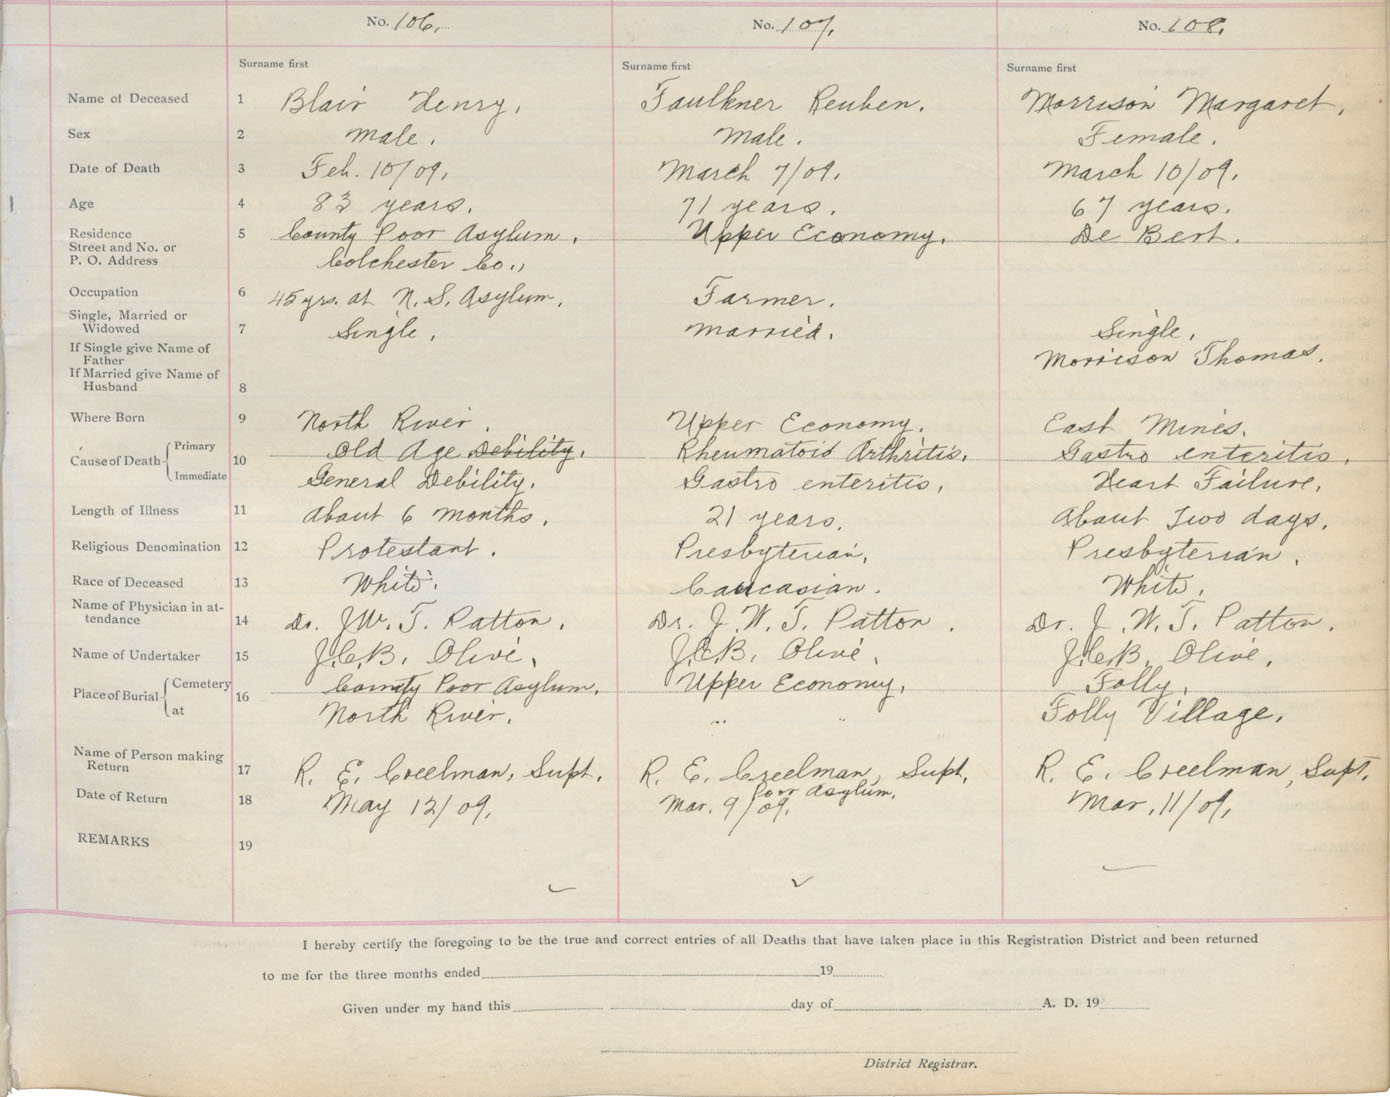 No. 106. No. 107. No. 108.
Surname first Surname first Surname first
Name of Deceased 1 Blair Henry. Faulkner Reuben. Morrison Margaret.
Sex 2 Male. Male. Female.
Date of Death 3 Feb. 10/09. March 7/09. March 10/09.
Age 4 83 years. 71 years. 67 years.
Residence 5 County Poor Asylum. Upper Economy. De Bert.
Street and No. or
P. O. Address Colchester Co.,
Occupation 6 45 yrs. at N. S. Asylum. Farmer.
Single, Married or
Widowed 7 Single. Married. Single.
If Single give Name of
Father Morrison Thomas.
If Married give Name of
Husband 8
Where Born 9 North River. Upper Economy. East Mines.
Cause of Death Primary 10 Old Age Debility. Rheumatoid Arthritis. Gastro enteritis.
Immediate General Debility. Gastro enteritis. Heart Failure.
Length of Illness 11 About 6 months. 21 years. About Two days.
Religious Denomination 12 Protestant. Presbyterian. Presbyterian.
Race of Deceased 13 White. Caucasian. White.
Name of Physician in at-
tendance 14 Dr. J. W. T. Patton. Dr. J. W. T. Patton. Dr. J. W. T. Patton.
Name of Undertaker 15 J.C.B. Olive. J.C.B. Olive. J.C.B. Olive.
Place of Burial Cemetery 16 County Poor Asylum. Upper Economy. Folly.
at North River. " " Folly Village.
Name of Person making
Return 17 R. E. Creelman, Supt. R. E. Creelman, Supt. R. E. Creelman, Supt.
Poor Asylum.
Date of Return 18 May 12/09. Mar. 9/09. Mar. 11/09.
REMARKS 19
I hereby certify the foregoing to be the true and correct entries of all Deaths that have taken place in this Registration District and been returned
to me for the three months ended 19
Given under my hand this day of A. D. 19
District Registrar.